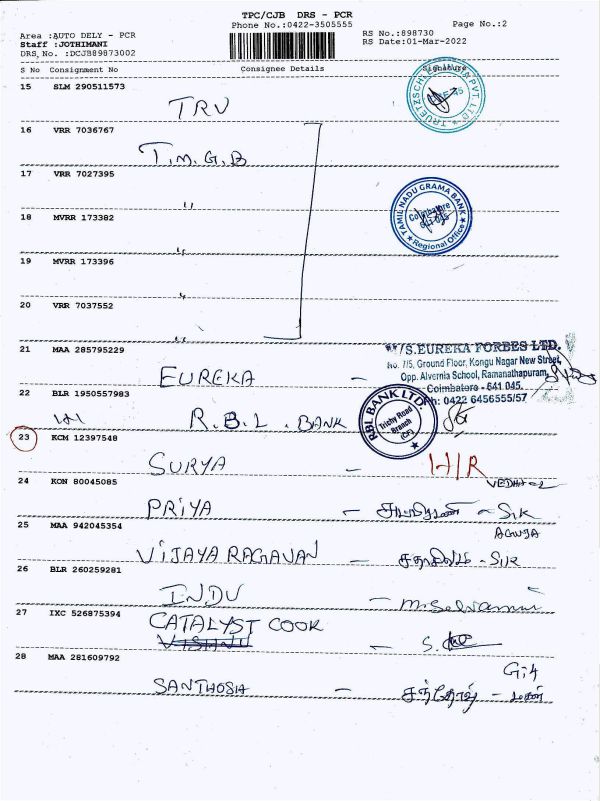 TPC/CJB DRS - PCR
Phone No.:0422-3505555
Page No.:2
Area :AUTO DELY - PCR
Staff :JOTHIMANI
DRS, No. :DCJB89873002
RS No.:898730
RS Date:01-Mar-2022
S No Consignment No Consignee Details Signature
15 SLM 290511573
TRV
16 VRR 7036767
T.M.G.B
17 VRR 7027395
"
18 MVRR 173382
"
19 MVRR 173396
"
20 VRR 7037552
"
TAMIL NADU GRAMA BANK
Coimbatore
641 045
Regional Office
21 MAA 285795229
EUREKA -
M/S.EUREKA FORBES LTD.
No. 7/5, Ground Floor, Kongu Nagar New Street,
Opp. Alvernia School, Ramanathapuram,
Coimbatore - 641 045.
Ph: 0422 6456555/57
22 BLR 1950557983
R.B.L. BANK
RBL BANK LTD.
Trichy Road
Branch
(CF)
23 KCM 12397548
SURYA - H/R
24 KON 80045085
PRIYA - - Sik
25 MAA 942045354
VIJAYA RAGAVAN - - Sik
26 BLR 260259281
INDU - M.Selvamani
27 IXC 526875394
CATALYST COOK
VISHNU - S.
28 MAA 281609792
SANTHOSH -